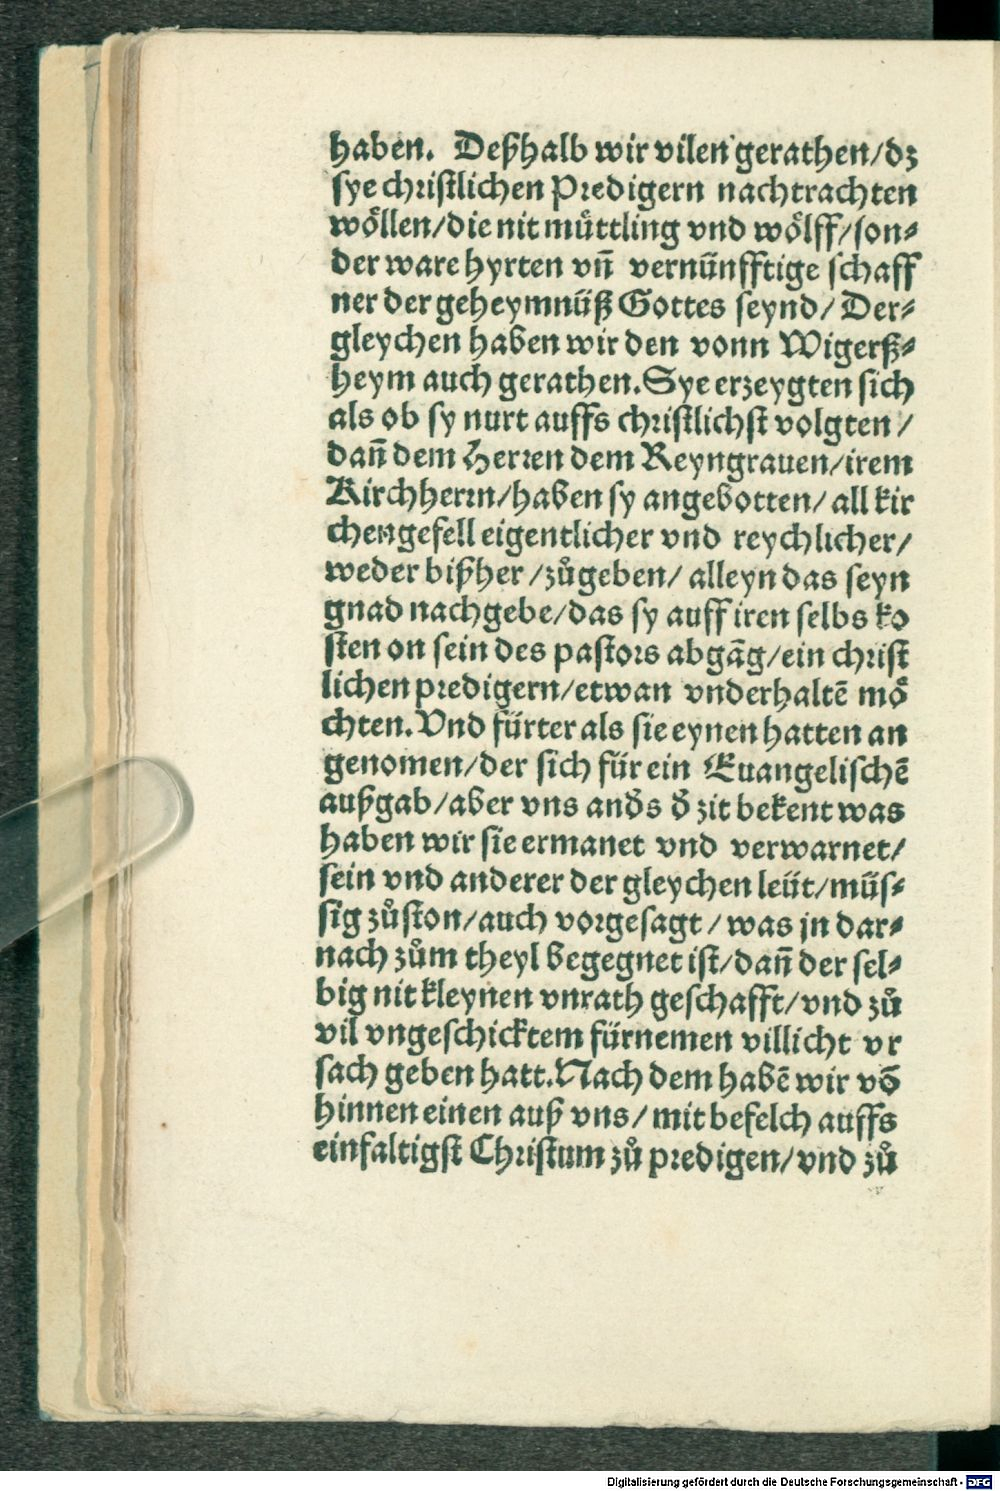 haben. Deßhalb wir vilen gerathen/dz
sye christlichen Predigern nachtrachten
woͤllen/die nit muͤttling vnd woͤlff/son⸗
der ware hyrten vn̄ vernünfftige schaff
ner der geheymnüß Gottes seynd/ Der⸗
gleychen haben wir den vonn Wigerß⸗
heym auch gerathen. Sye erzeygten sich
als ob sy nurt auffs christlichst volgten/
dan̄ dem Herren dem Reyngrauen/irem
Kirchherrn/haben sy angebotten/ all kir
chengefell eigentlicher vnd reychlicher/
weder bißher/zůgeben/ alleyn das seyn
gnad nachgebe/das sy auff iren selbs ko
sten on sein des pastors abgāg/ein christ
lichen predigern/etwan vnderhaltē moͤ
chten. Vnd fürter als sie eynen hatten an
genomen/der sich für ein Euangelischē
außgab/aber vns anđs đ zit bekent was
haben wir sie ermanet vnd verwarnet/
sein vnd anderer der gleychen leüt/müs⸗
sig zůston/auch vorgesagt/was jn dar⸗
nach zům theyl begegnet ist/dan̄ der sel⸗
big nit kleynen vnrath geschafft/vnd zů
vil vngeschicktem fürnemen villicht vr
sach geben hatt. Nach dem habē wir vō
hinnen einen auß vns/ mit befelch auffs
einfaltigst Christum zů predigen/vnd zů
Digitalisierung gefördert durch die Deutsche Forschungsgemeinschaft - DFG